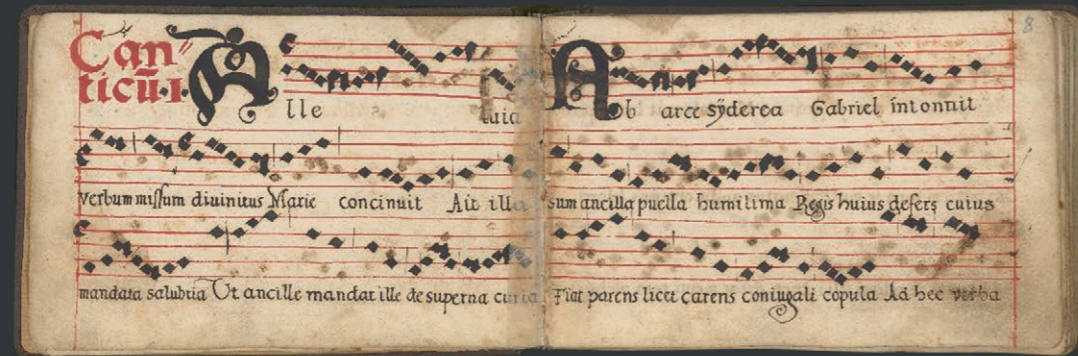 8
Can
ticū·I· Alle luia Ab arce sÿderea Gabriel intonuit
verbum missum diuinitus Marie concinuit Ait illa sum ancilla puella humilima Regis huius defers cuius
mandata salubria Ut ancille mandat ille de superna curia Fiat parens licet carens coniugali copula Ad hec verba